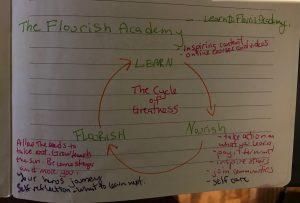 The Flourish Academy
- Learn to Flourish Academy.
- Inspiring content
- online courses and videos
LEARN
The Cycle
of
Greatness
Nourish
- take action on
what you learn
- inspire others
- join communities
- self care
FLOURISH
Allow the seeds to
take root. Grow towards
the sun. Become stronger
and more you!
Your hero's journey
Self reflection - want to learn next.